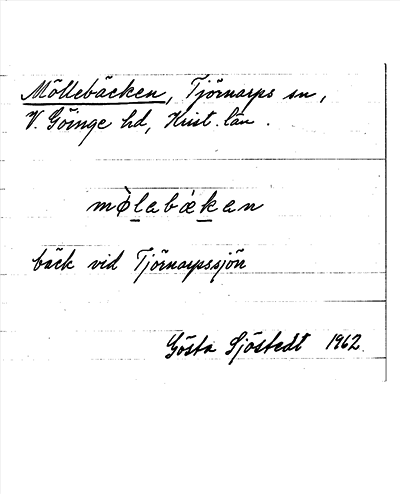 Möllebäcken, Tjörnarps sn,
V. Göinge hd, Krist. län.
mø̀lebækan
bäck vid Tjörnarpssjön
Gösta Sjöstedt 1962.